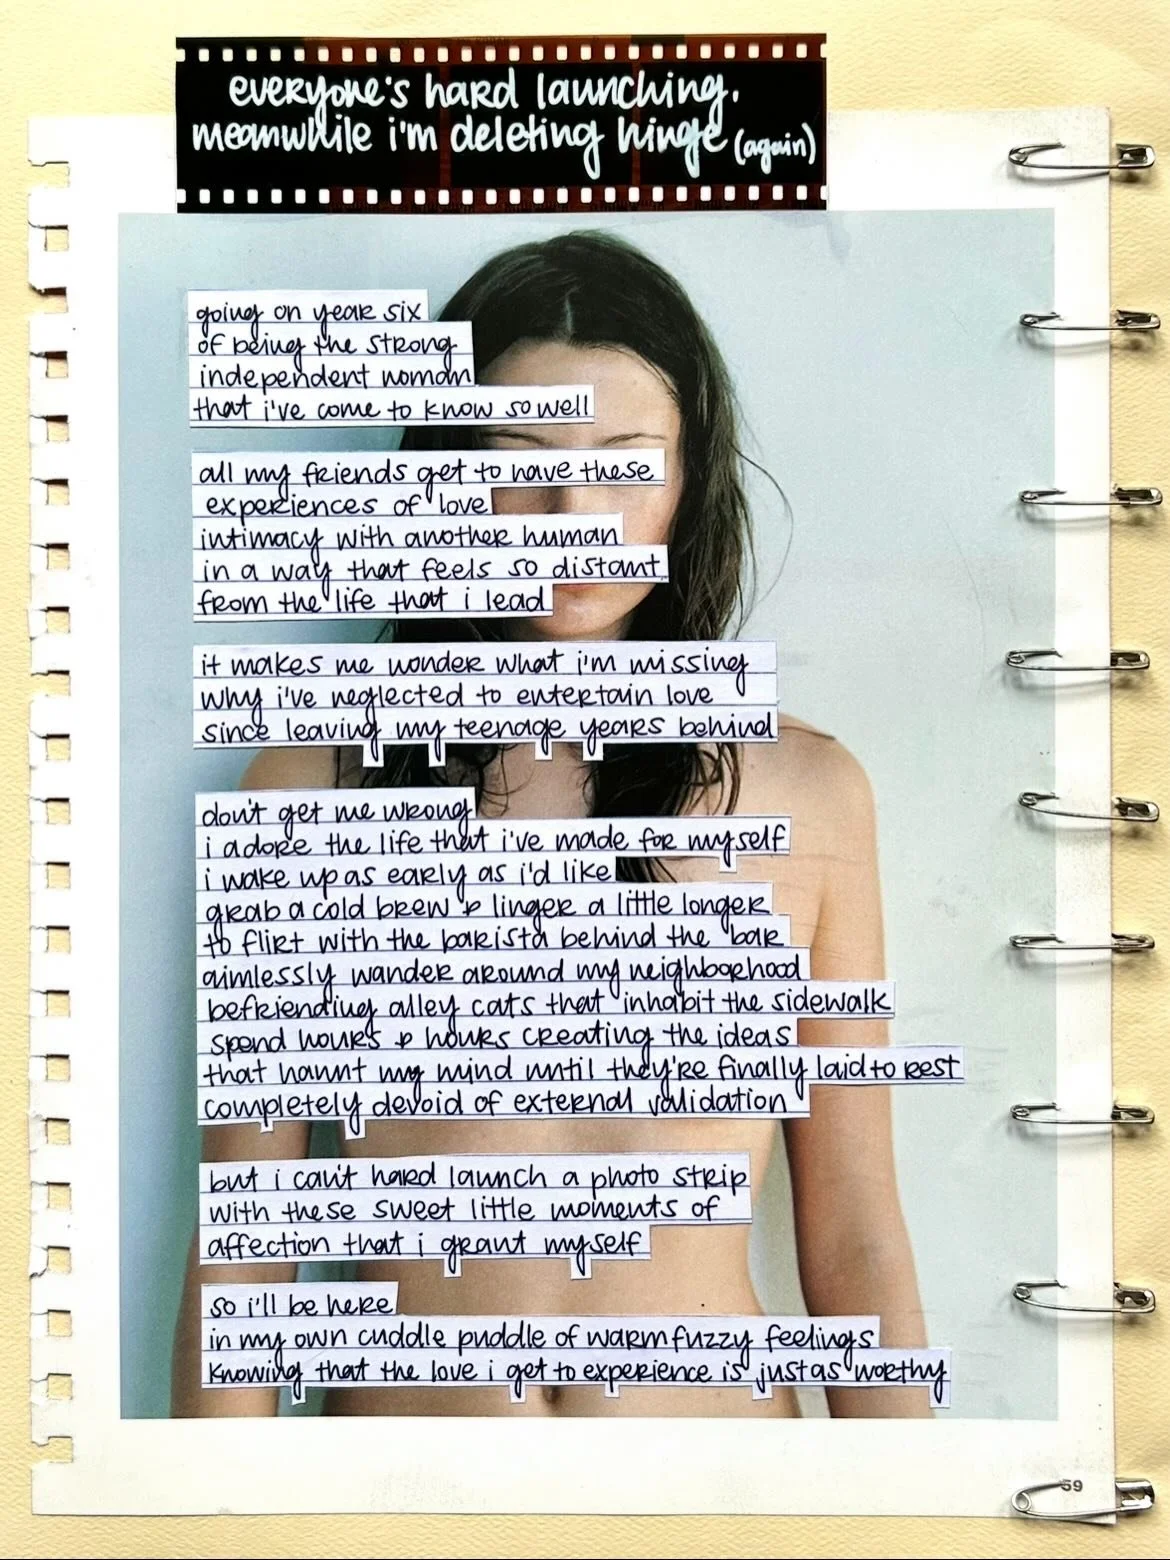 everyone's hard launching.
meanwhile i'm deleting hinge (again)
going on year six
of being the strong
independent woman
that i've come to know so well
all my friends get to have these
experiences of love
intimacy with another human
in a way that feels so distant
from the life that i lead
it makes me wonder what i'm missing
why i've neglected to entertain love
since leaving my teenage years behind
don't get me wrong
i adore the life that i've made for myself
i wake up as early as i'd like
grab a cold brew & linger a little longer
to flirt with the barista behind the bar
aimlessly wander around my neighborhood
befriending alley cats that inhabit the sidewalk
spend hours & hours creating the ideas
that haunt my mind until they're finally laid to rest
completely devoid of external validation
but i can't hard launch a photo strip
with these sweet little moments of
affection that i grant myself
so i'll be here
in my own cuddle puddle of warm fuzzy feelings
knowing that the love i get to experience is just as worthy
59